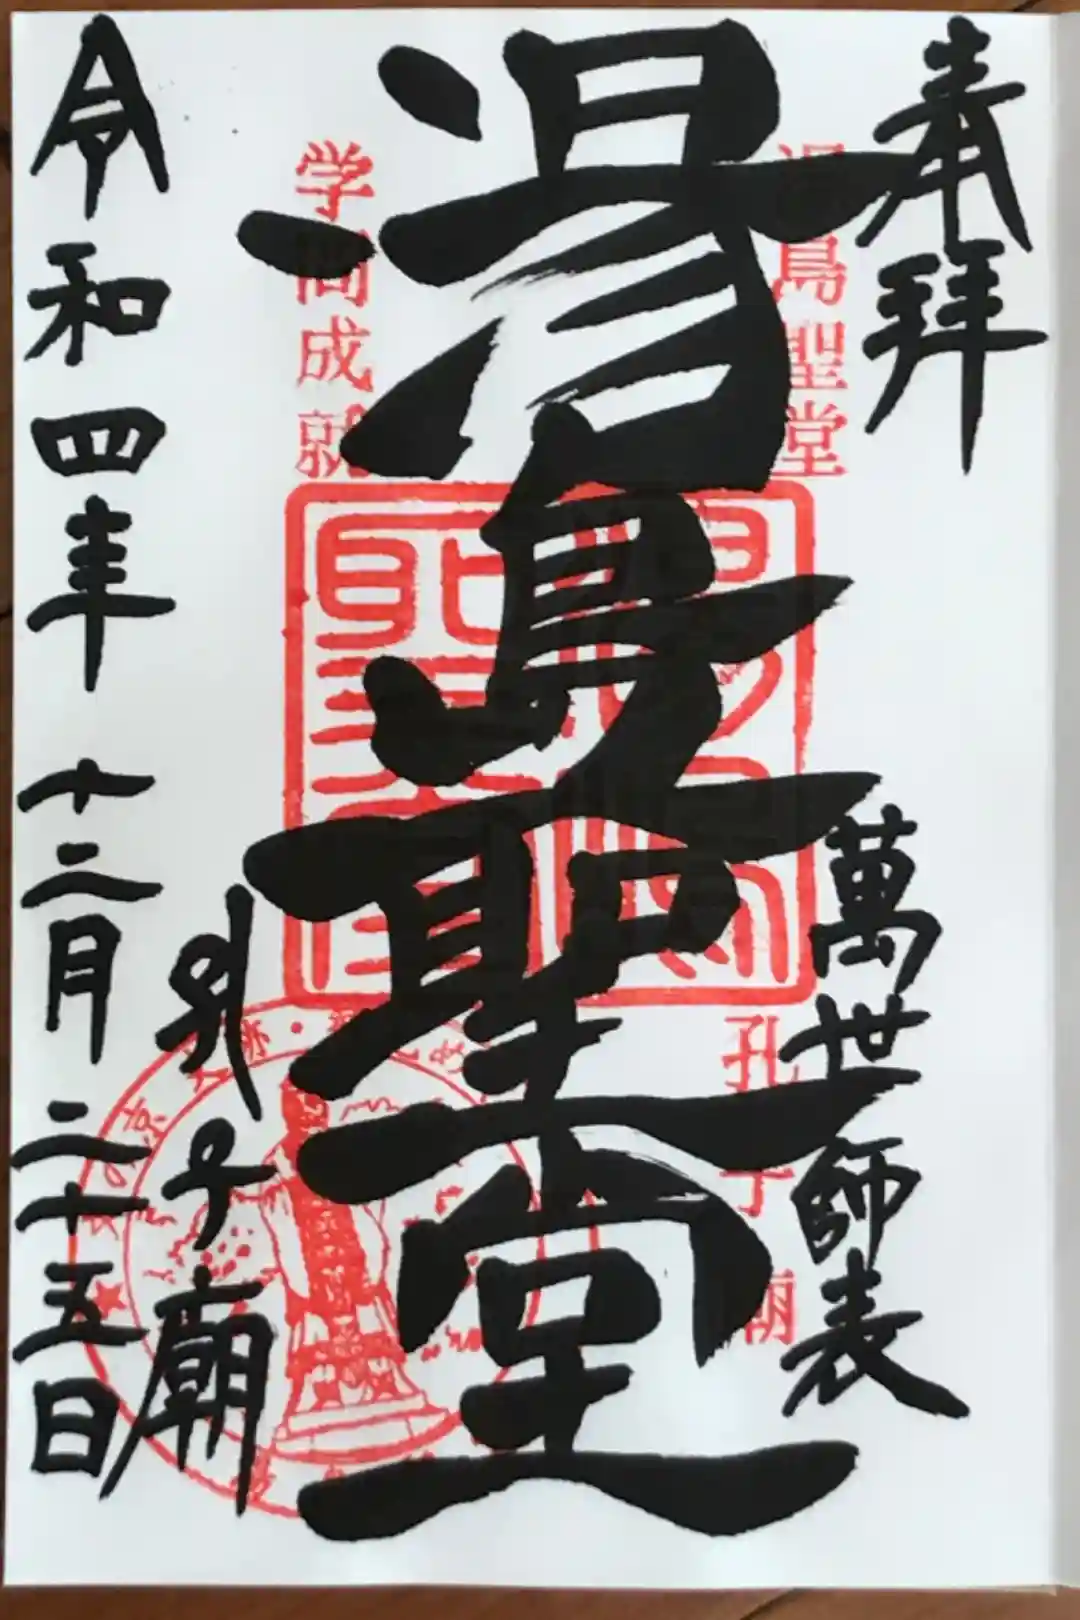 奉拝
萬世師表
湯島聖堂
孔子廟
湯島聖堂
学問成就
孔子廟
令和四年十二月二十五日